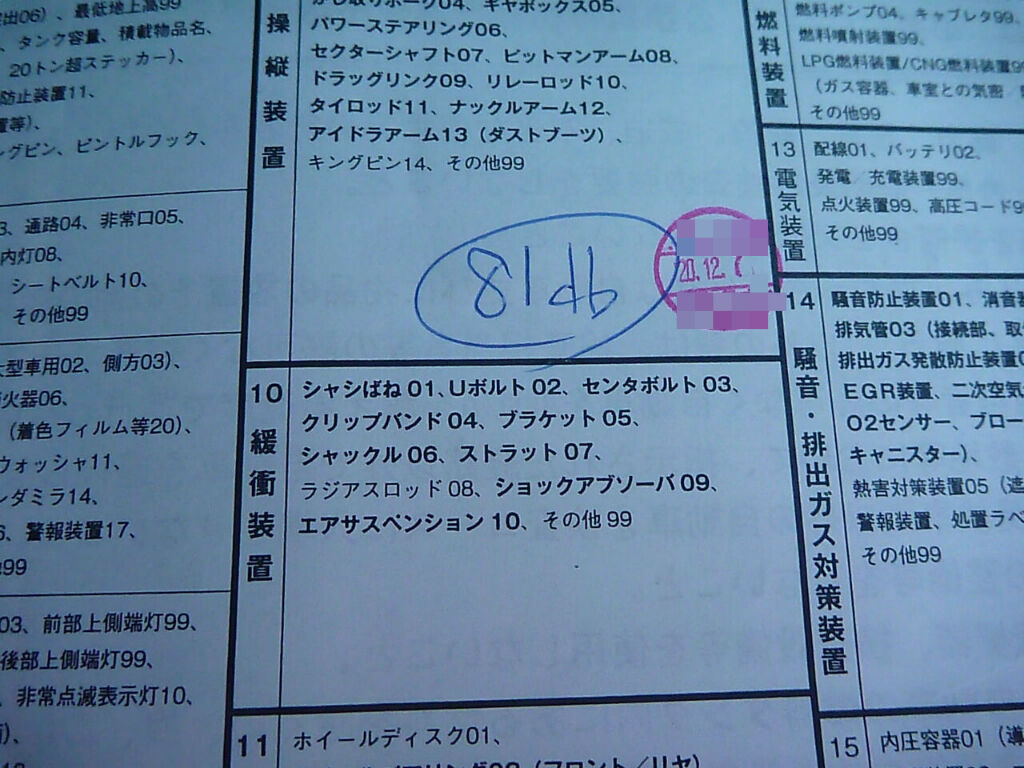 最低地上高99
タンク容量、積載物品名、
20トン超ステッカー)、
防止装置11、
ピントルフック、
通路04、非常口05、
内灯08、
シートベルト10、
その他99
型車用02、側方03)、
火器06、
(着色フィルム等20)、
ウォッシャ11、
ンダミラ14、
警報装置17、
99
03、前部上側端灯99、
後部上側端灯99、
非常点滅表示灯10、
操縦装置
ギヤボックス05、
パワーステアリング06、
セクターシャフト07、ピットマンアーム08、
ドラッグリンク09、リレーロッド10、
タイロッド11、ナックルアーム12、
アイドラアーム13(ダストブーツ)、
キングピン14、その他99
81db
20.12.
10 緩衝装置
シャシばね 01、Uボルト 02、センタボルト 03、
クリップバンド 04、ブラケット 05、
シャックル 06、ストラット 07、
ラジアスロッド 08、ショックアブソーバ 09、
エアサスペンション 10、その他 99
11
ホイールディスク01、
(フロント/リヤ)
燃料装置
燃料ポンプ04、キャブレタ99、
燃料噴射装置99、
LPG燃料装置/CNG燃料装置9
(ガス容器、車室との気密
その他99
13 電気装置
配線01、バッテリ02、
発電/充電装置99、
点火装置99、高圧コード9
その他99
14 騒音・排出ガス対策装置
騒音防止装置01、消音器
排気管03(接続部、取
排出ガス発散防止装置0
EGR装置、二次空気
O2センサー、ブロー
キャニスター)、
熱害対策装置05(遮
警報装置、処置ラベ
その他99
15
内圧容器01(導